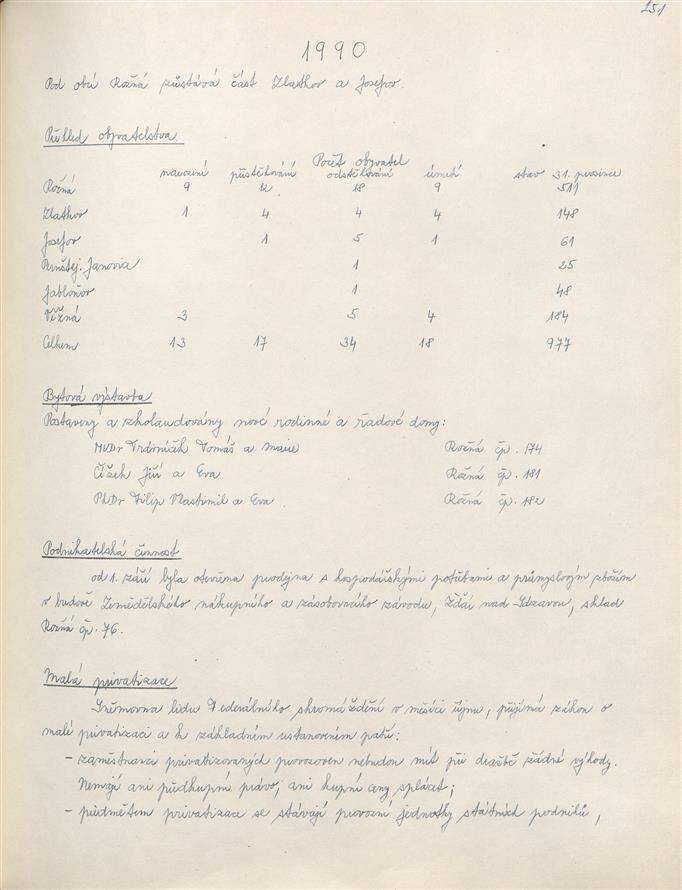 251
1990
Pod obcí Rožná zůstává část Zlatkov a Josefov.
Přehled obyvatelstva.
Počet obyvatel
narození přistěhování odstěhování úmrtí stav 31. prosince
Rožná 9 12 18 9 511
Zlatkov 1 4 4 4 148
Josefov 1 5 1 61
Pernštej. Janovia 1 25
Jabloňov 1 48
Věžná 3 5 4 184
Celkem 13 17 34 18 977
Bytová výstavba
Postaveny a zkolaudovány nové rodinné a řadové domy:
MVDr Vrábníček Tomáš a Marie Rožná čp. 174
Čížek Jiří a Eva Rožná čp. 181
PhDr Filip Vlastimil a Eva Rožná čp. 182
Podnikatelská činnost
od 1. září byla otevřena prodejna s hospodářskými potřebami a průmyslovým zbožím
v budově Zemědělského nákupního a zásobovacího závodu, Žďár nad Sázavou, sklad
Rožná čp. 76.
Malá privatizace
Sněmovna lidu Federálního shromáždění v měsíci říjnu, přijímá zákon o
malé privatizaci a k základním ustanovením patří:
- zaměstnanci privatizovaných provozoven nebudou mít při dražbě žádné výhody.
Nemají ani předkupní právo, ani kupní ceny splácet;
- předmětem privatizace se stávají provozní jednotky státních podniků,